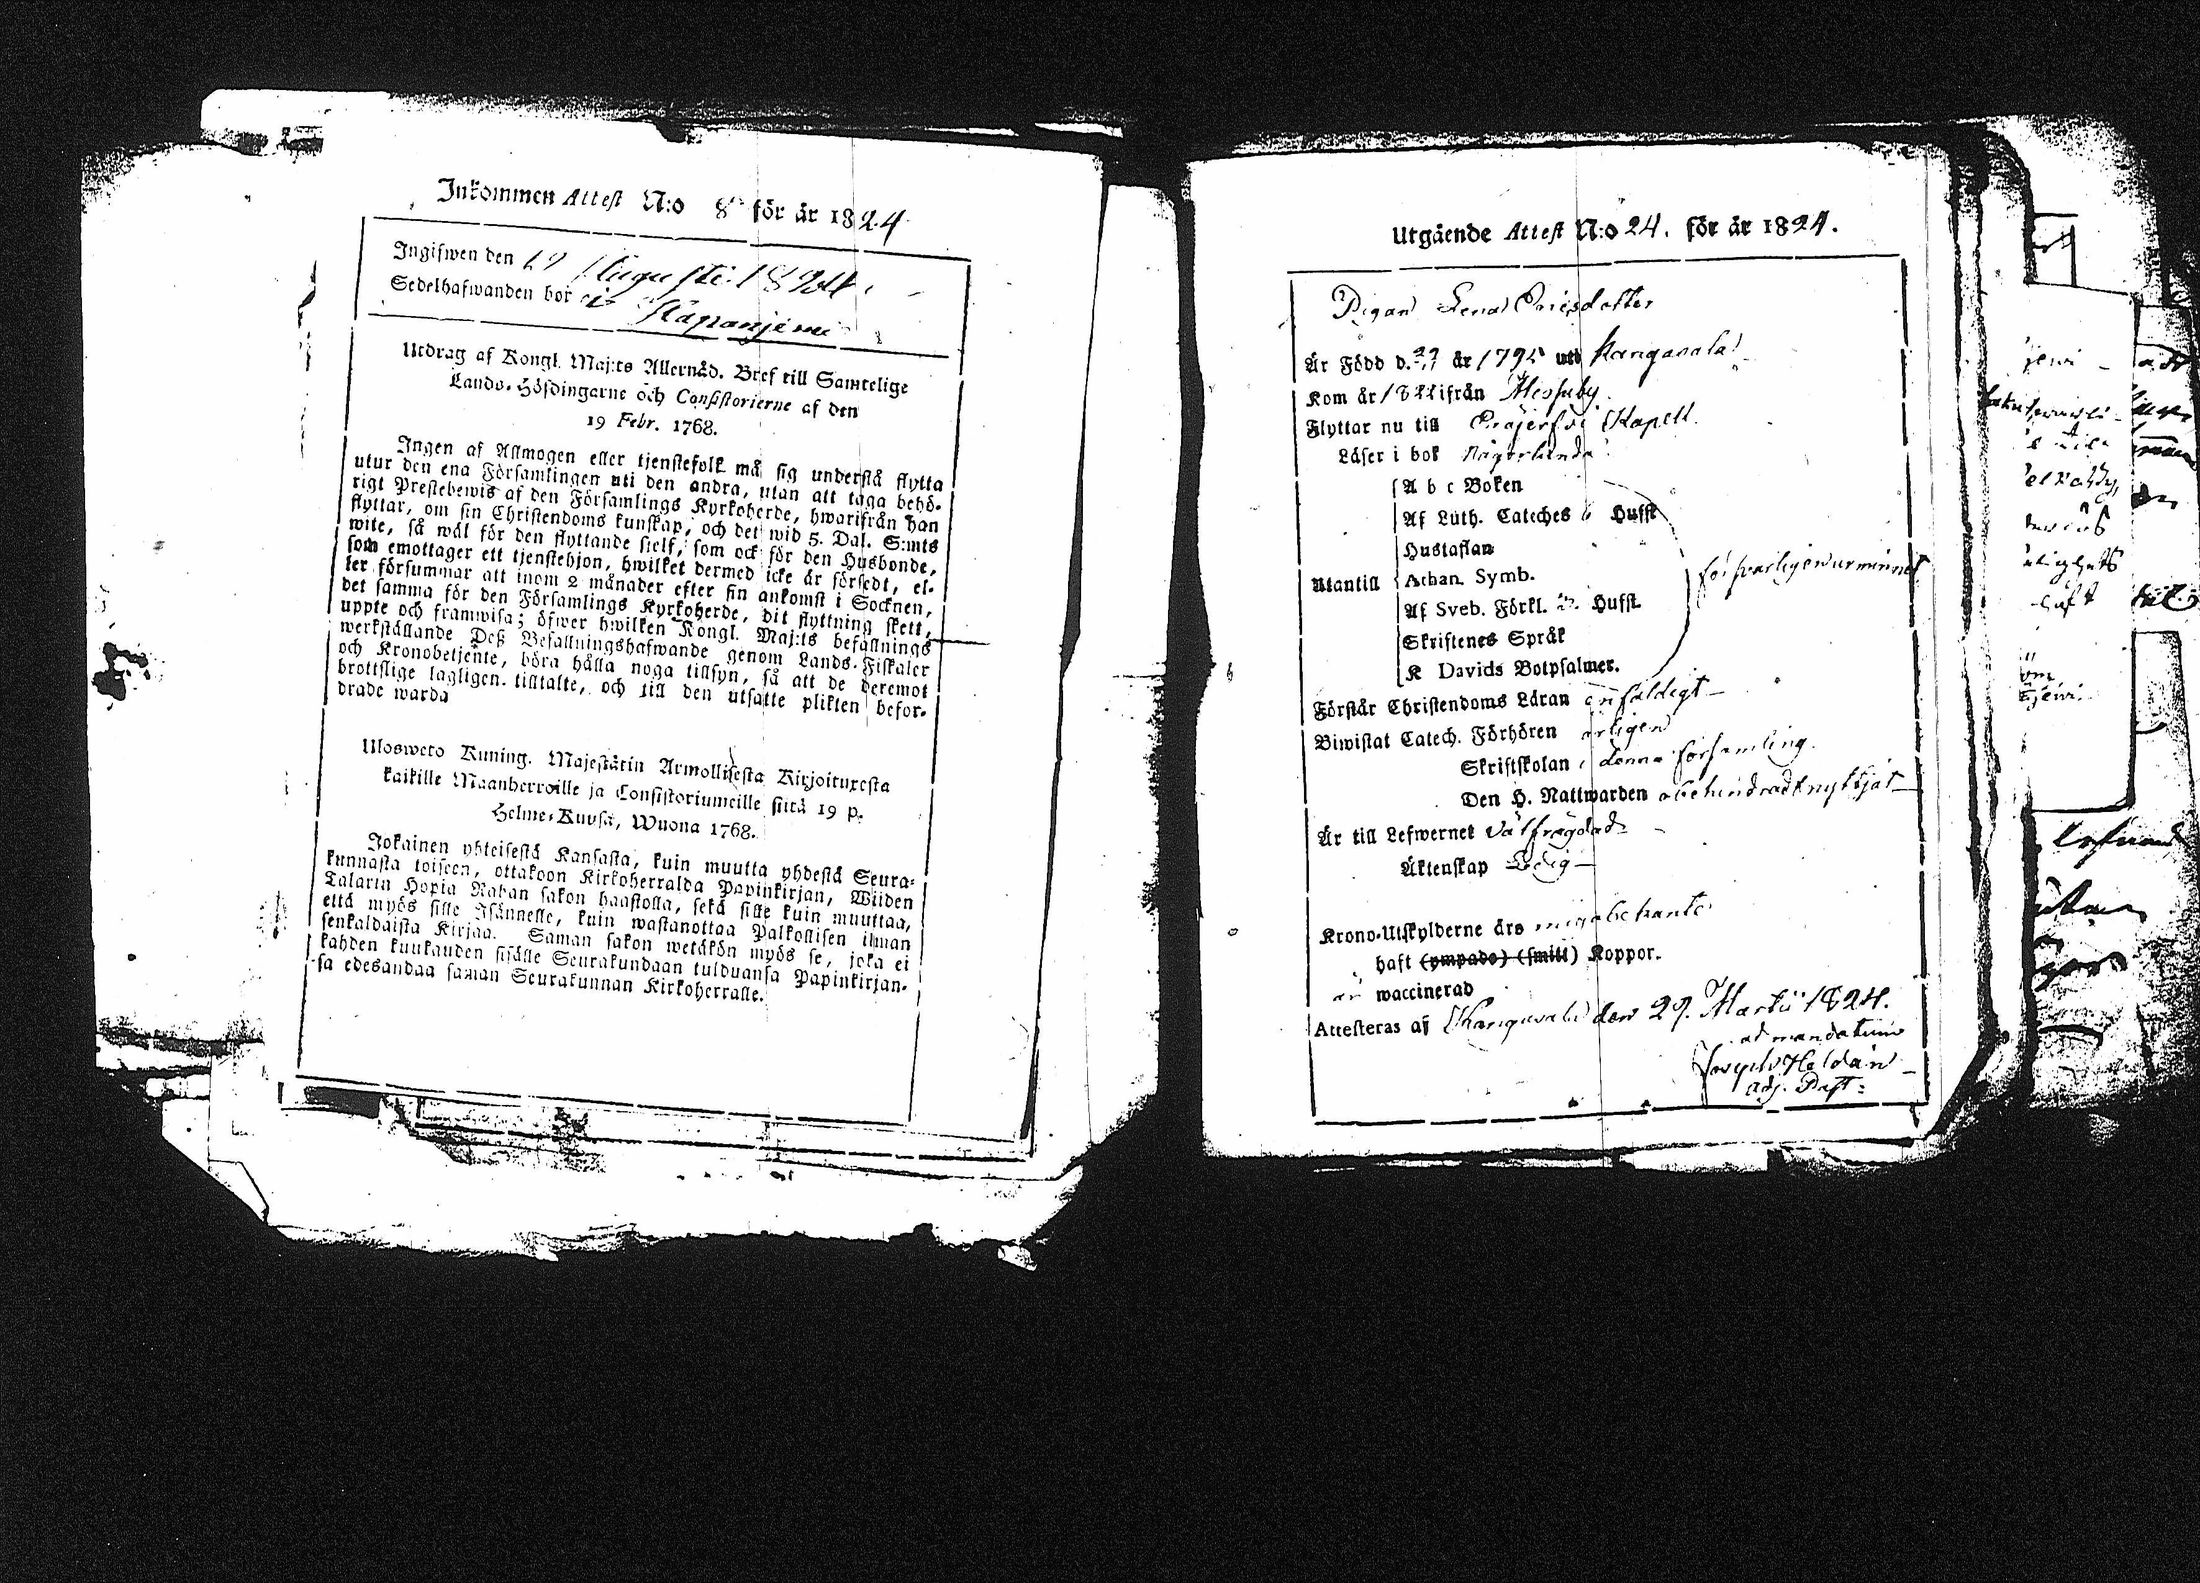 Inkommen Attest N:o 8 för år 1824
Ingifwen den 19 Augusti 1824.
Sedelhafwanden bor i Kapanjemi
Utdrag af Kongl. Maj:ts Allernåd. Bref till Samtelige
Lands-Höfdingarne och Consistorierne af den
19 Febr. 1768.
Ingen af Allmogen eller tjenstefolk må sig understå flytta
utur den ena Församlingen uti den andra, utan att taga behö-
rigt Prestebewis af den Församlings Kyrkoherde, hwarifrån han
flyttar, om sin Christendoms kunskap, och det wid 5. Dal. S:mts
wite, så wäl för den flyttande sielf, som ock för den Husbonde,
som emottager ett tjenstehjon, hwilket dermed icke är försedt, el-
ler försummar att inom 2 månader efter sin ankomst i Socknen,
det samma för den Församlings Kyrkoherde, dit flyttning skett,
uppte och framwisa; öfwer hwilken Kongl. Maj:ts befallnings
werkställande Deß Befallningshafwande genom Lands-Fiskaler
och Kronobetjente, böra hålla noga tillsyn, så att de deremot
brottslige lagligen tilltalte, och till den utsatte plikten befor-
drade warda
Ulosweto Kuning. Majestätin Armollisesta Kirjoituxesta
kaikille Maanherroille ja Consistoriumeille siitä 19 p.
Helme-Kuusa, Wuona 1768.
Jokainen yhteisestä Kansasta, kuin muutta yhdestä Seura-
kunnasta toiseen, ottakoon Kirkoherralda Papinkirjan, Wiiden
Talarin Hopia Rahan sakon haastolla, sekä sille kuin muuttaa,
että myös sille Isännelle, kuin wastanottaa Palkollisen ilman
senkaldaista Kirjaa. Saman sakon wetäkön myös se, joka ei
kahden kuukauden sisälle Seurakundaan tulduansa Papinkirjan-
sa edesandaa saman Seurakunnan Kirkoherralle.
Utgående Attest N:o 24. för år 1824.
Pigan Lena Ericsdotter
Är Född d. 27 år 1795 uti Kangasala
Kom år 1822 ifrån Messuby
Flyttar nu till Eräjerfvi Kapell.
Läser i bok någorlunda
A b c Boken
Af Luth. Cateches Hufst
Hustaflan
Utantill Athan. Symb. försvarligen ur minnet
Af Sveb. Förkl. Hufst.
Skriftenes Språk
K Davids Botpsalmer.
Förstår Christendoms Läran enfaldigt
Biwistat Catech. Förhören årligen
Skriftskolan i denna församling.
Den H. Nattwarden obehindradt nyttjat
Är till Lefwernet välfrägdad
Äktenskap Ledig
Krono-Utskylderne äro mig obekante
haft (ympade) (smitt) Koppor.
är waccinerad
Attesteras af Kangasala den 29. Martii 1824.
ad mandatum
Joseph Heldán
adj. Past: